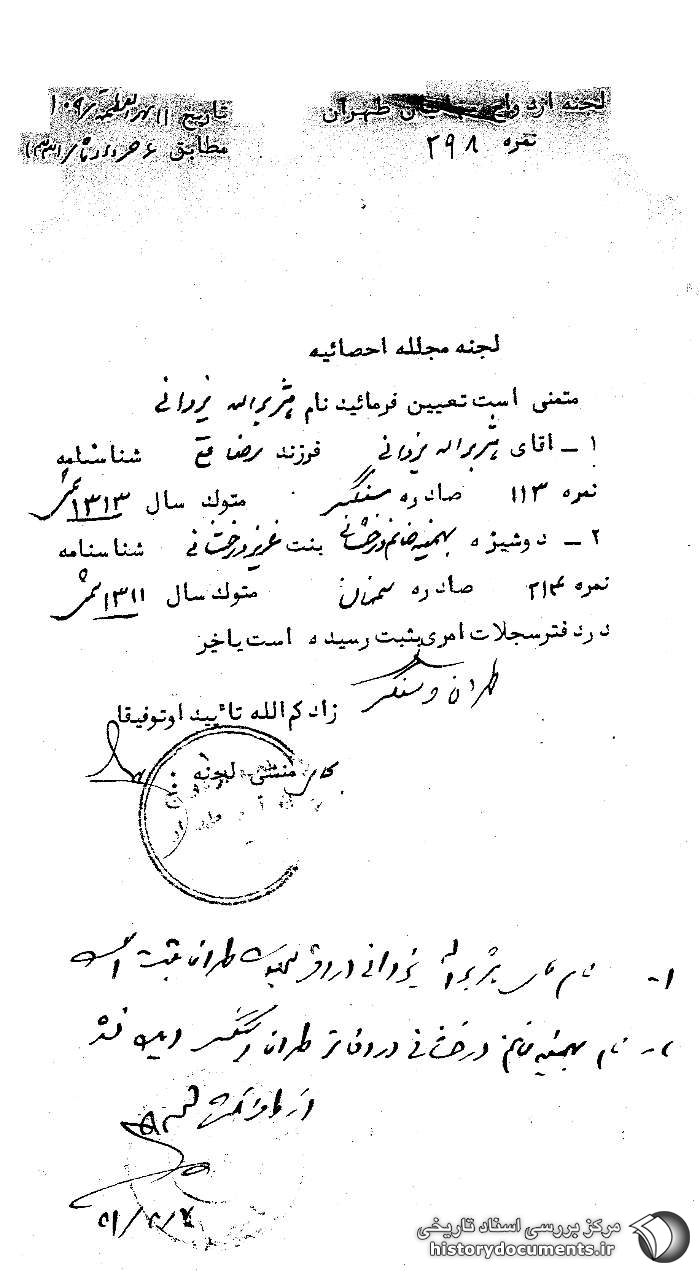 لجنه ازدواج طهران
نمره ۲۹۸
تاریخ ۱۱ شهر العظمة ۱۰۹
مطابق ۶ خرداد
لجنه مجلله احصائیه
متمنی است تعیین فرمائید نام یزدانی
۱ ــ اقای یزدانی فرزند رضا شناسنامه
نمره ۱۱۳ صادره سنگسر متولد سال ۱۳۱۳
۲ ــ دوشیزه بهمنیه خانم درخشانی بنت عزیز درخشانی شناسنامه
نمره ۲۱۴ صادره سمنان متولد سال ۱۳۱۱
در دفتر سجلات امری بثبت رسیده است یا خیر
طهران و سنگسر
زادکم الله تائیدا و توفیقا
منشی لجنه :
۱ـ نام یزدانی در دفتر طهران ثبت است
۲ـ نام بهمنیه خانم درخشانی در دفاتر طهران و سنگسر دیده نشد
مرکز بررسی اسناد تاریخی
historydocuments.ir